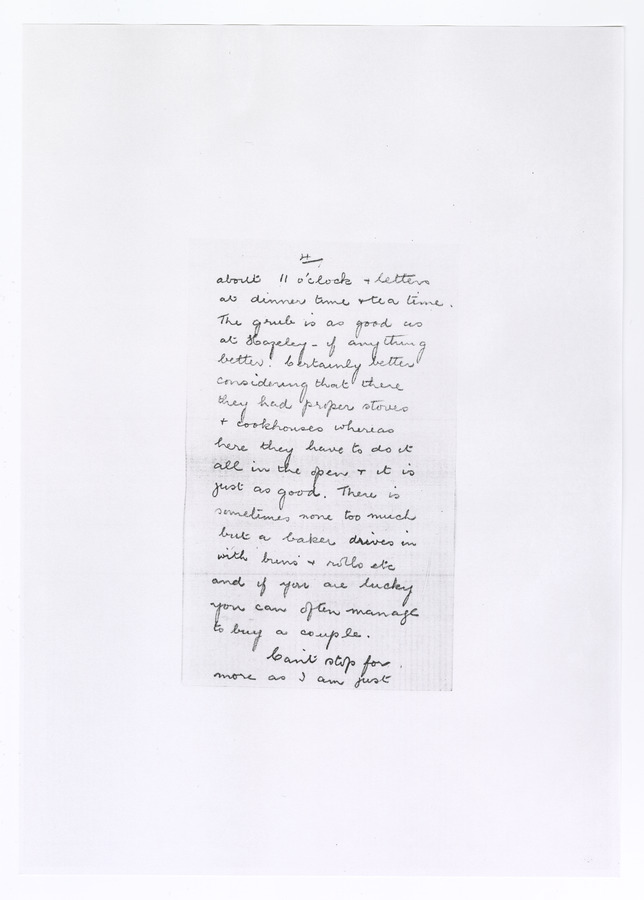 4
about 11 o'clock + letters
at dinner time + tea time.
The grub is as good as
at Hazeley - if anything
better. Certainly better
considering that there
they had proper stoves
+ cookhouses whereas
here they have to do it
all in the open + it is
just as good. There is
sometimes none too much
but a baker drives in
with buns + rolls etc
and if you are lucky
you can often manage
to buy a couple.
Can't stop for
more as I am just